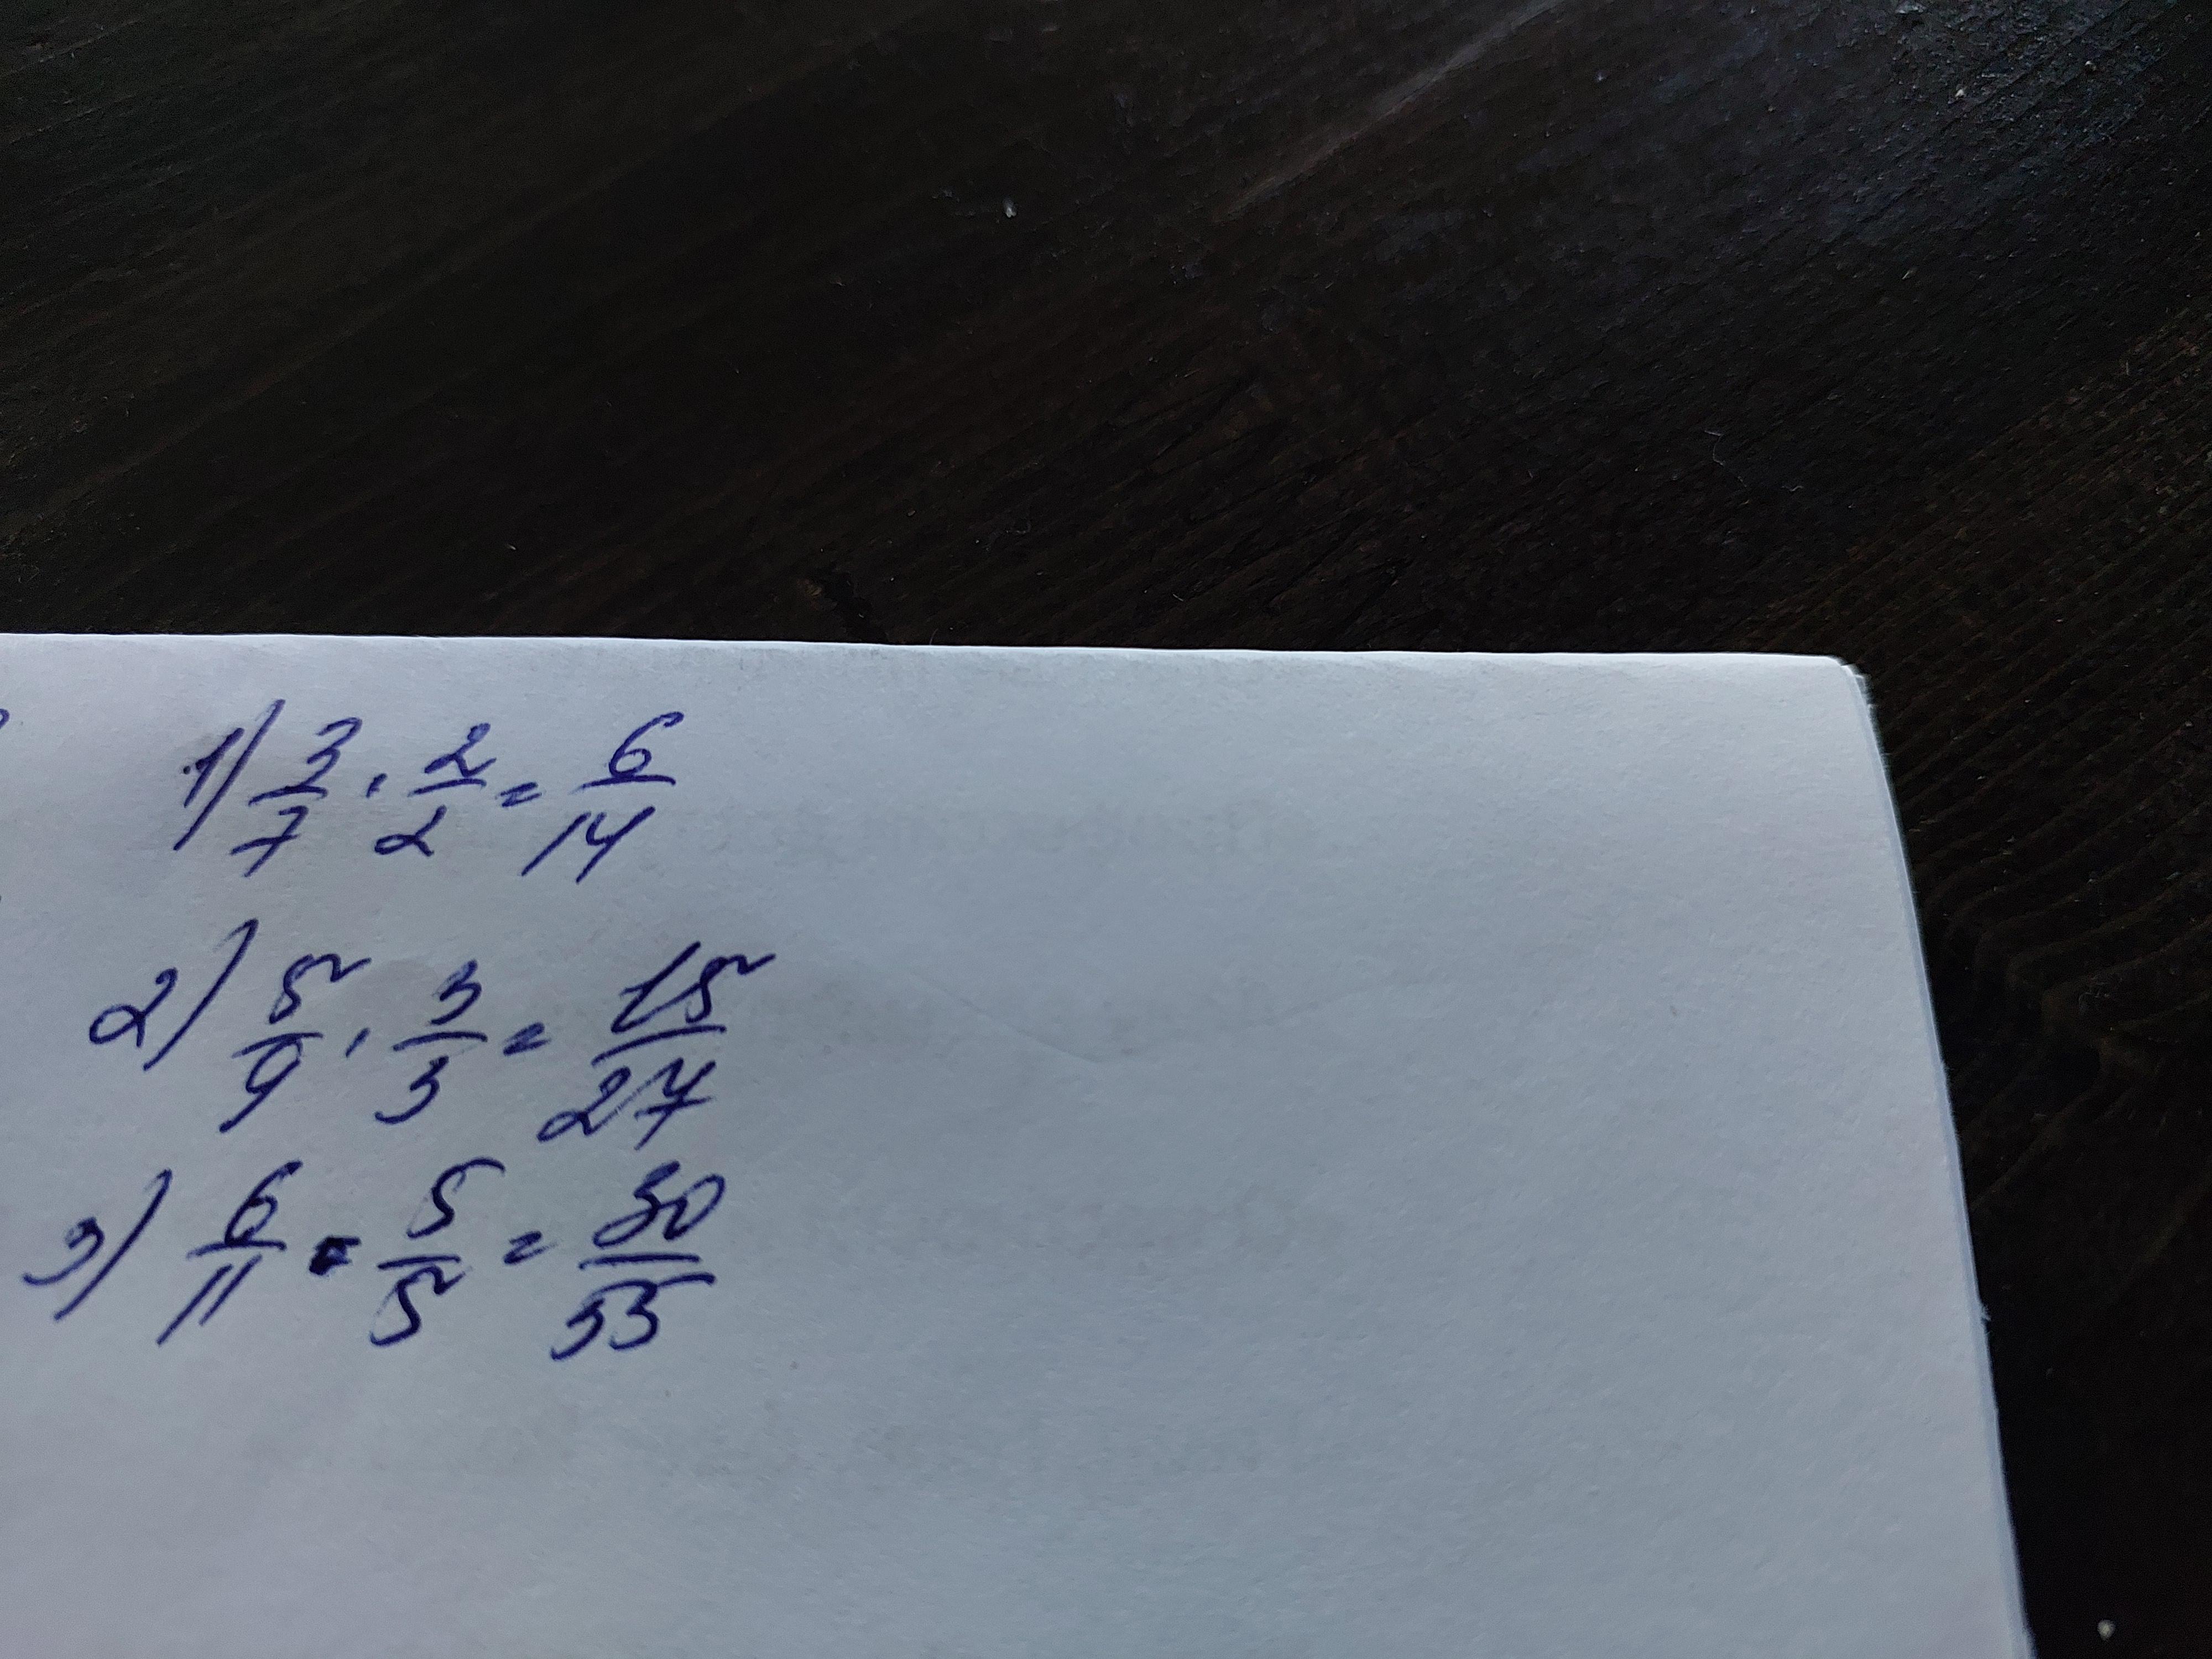 1) 3/7 · 2/2 = 6/14
2) 5/9 · 3/3 = 15/27
3) 6/11 · 5/5 = 30/55